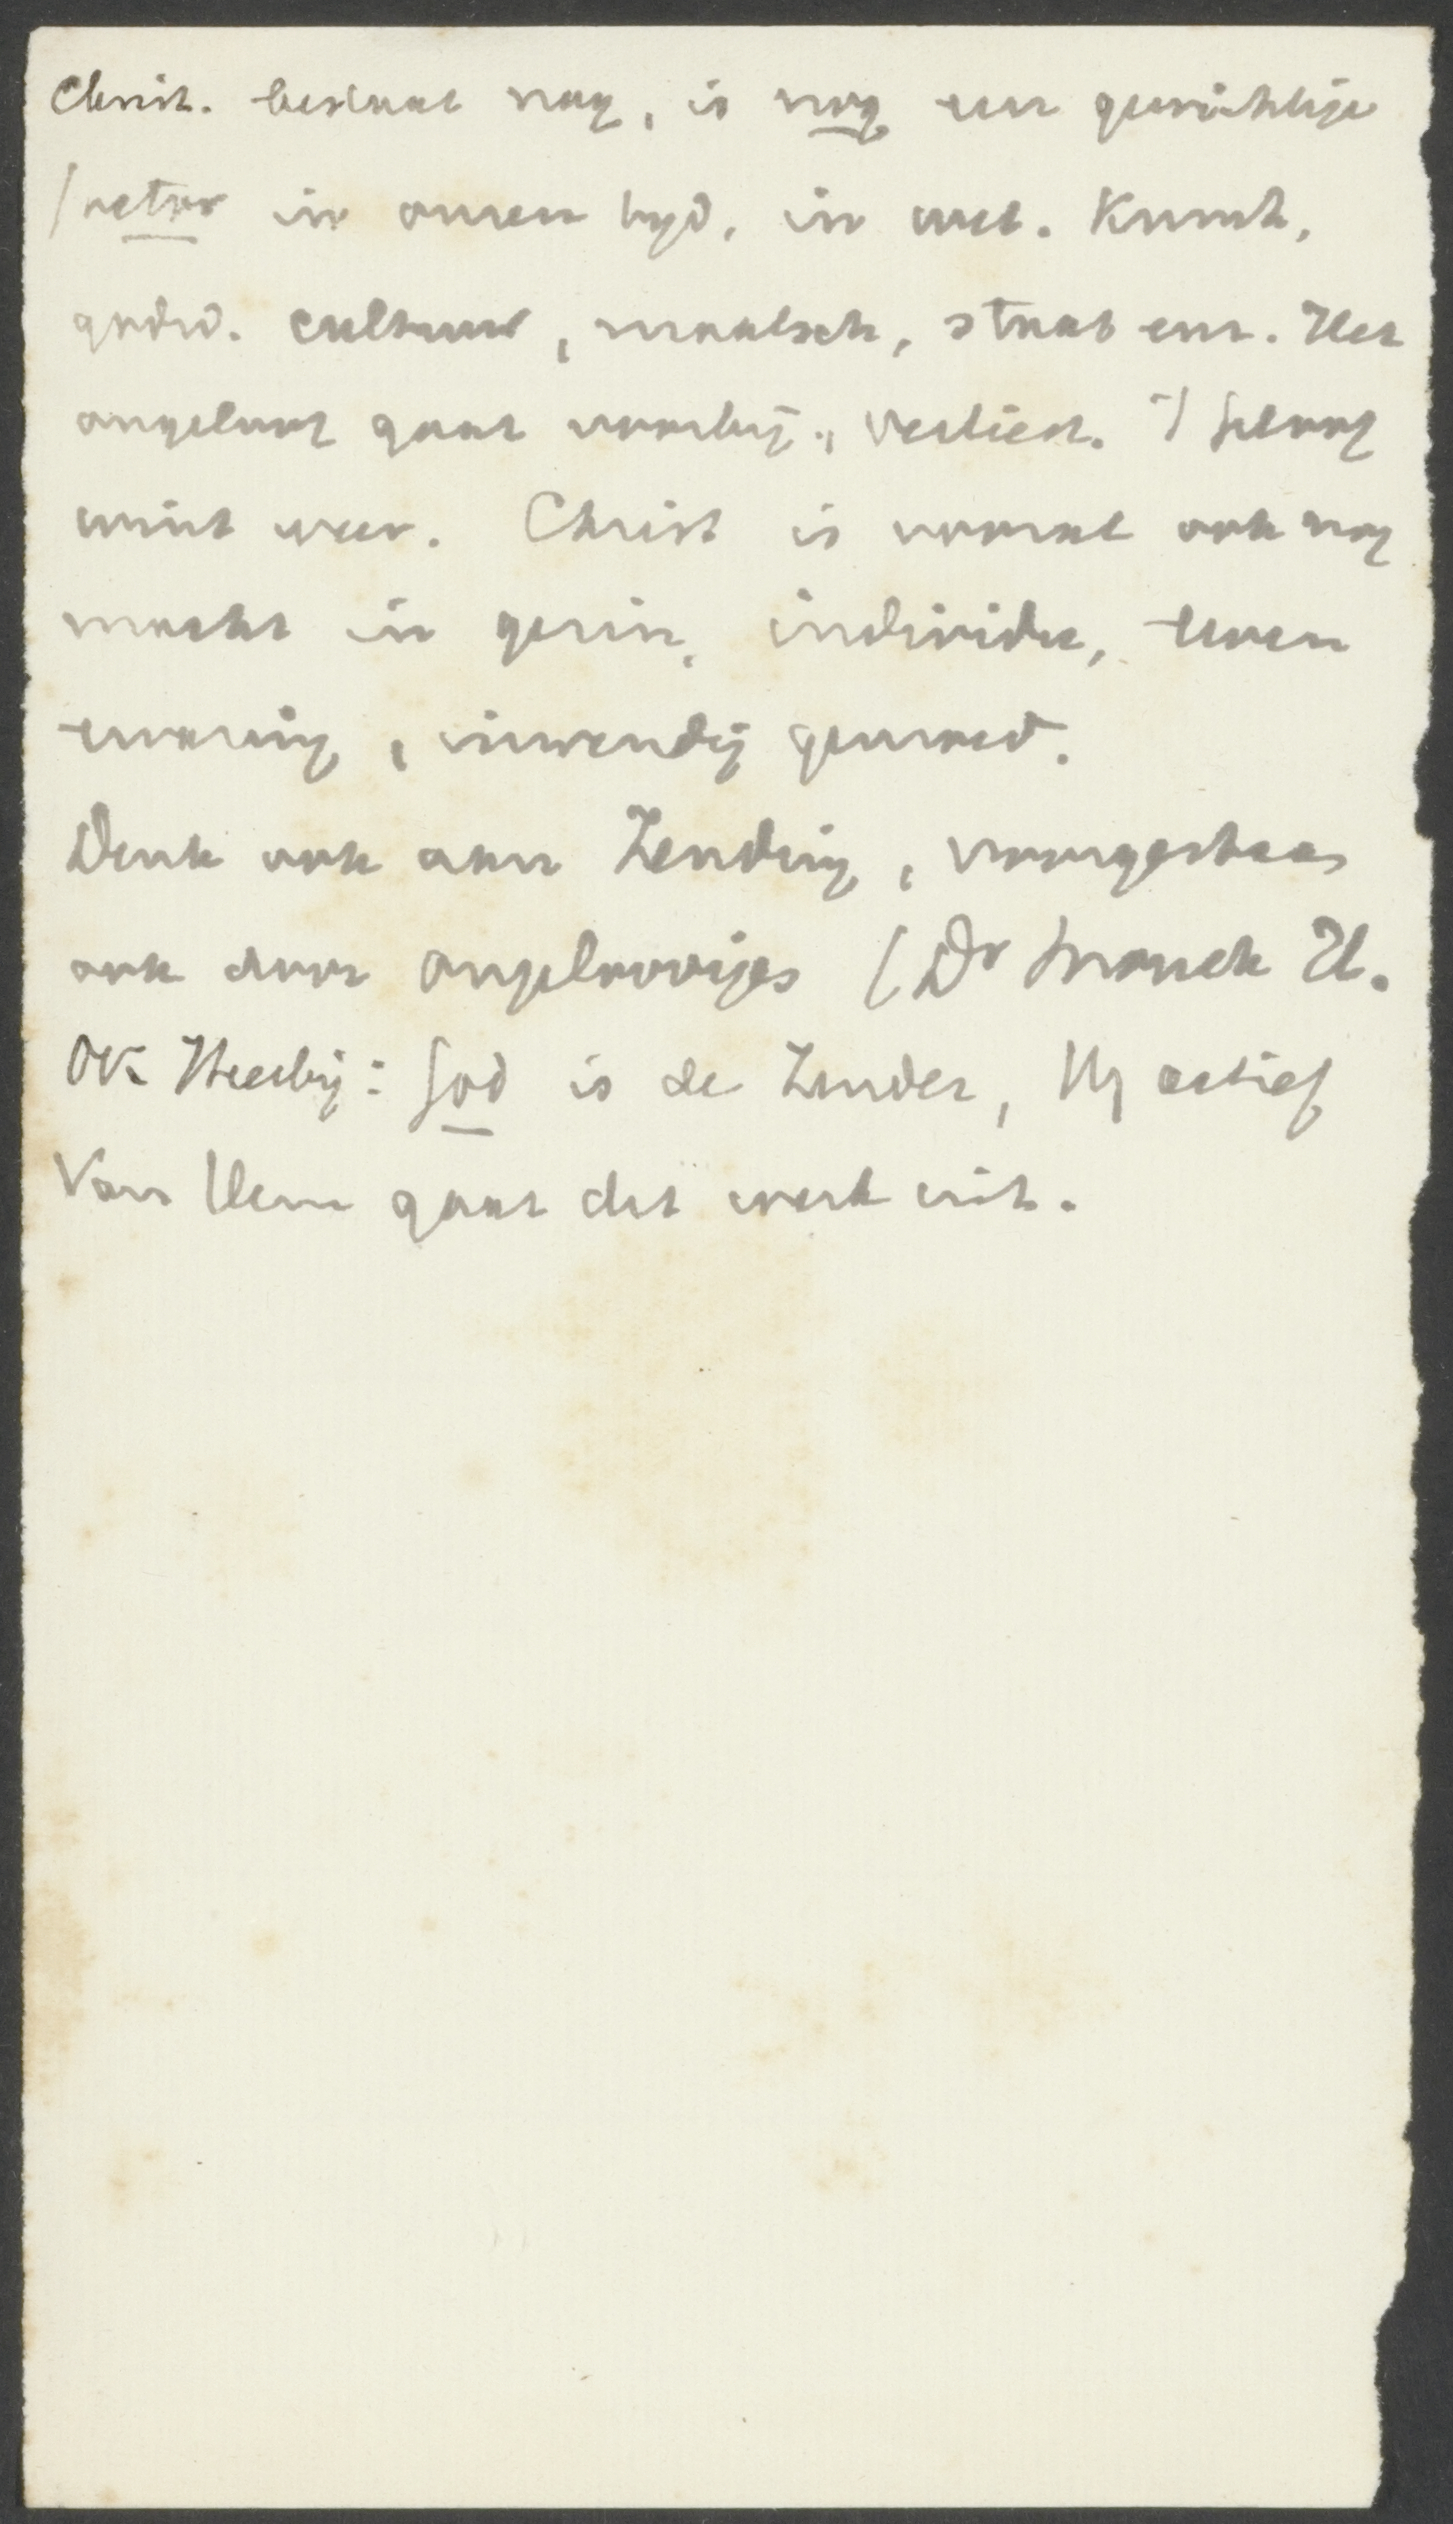 Christ. bestaat nog, is nog een gewichtige
factor in onzen tijd, in wet. Kunst,
godsd. cultuur, maatsch, staat enz. Het
ongeloof gaat voorbij, verliest. 't Geloof
wint weer. Christ is vooral ook nog
macht in gezin, individu, leven
inwendig gemoed.
Denk ook aan Zending, voorgestaan
ook door ongeloovigen (Dr Snouck H.
OK Hierbij: God is de Zender, Hij actief
Van Hem gaat dit werk uit.